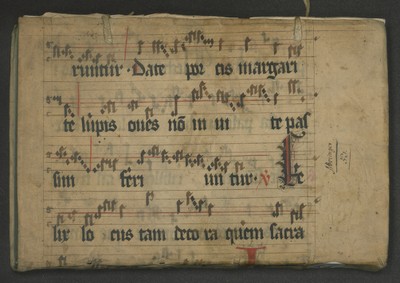 runtur. Date por cis margari
te lupis oues nō in ui te pas
sim feri un tur. V Fe
lix lo cus tam deco ra quem sacra